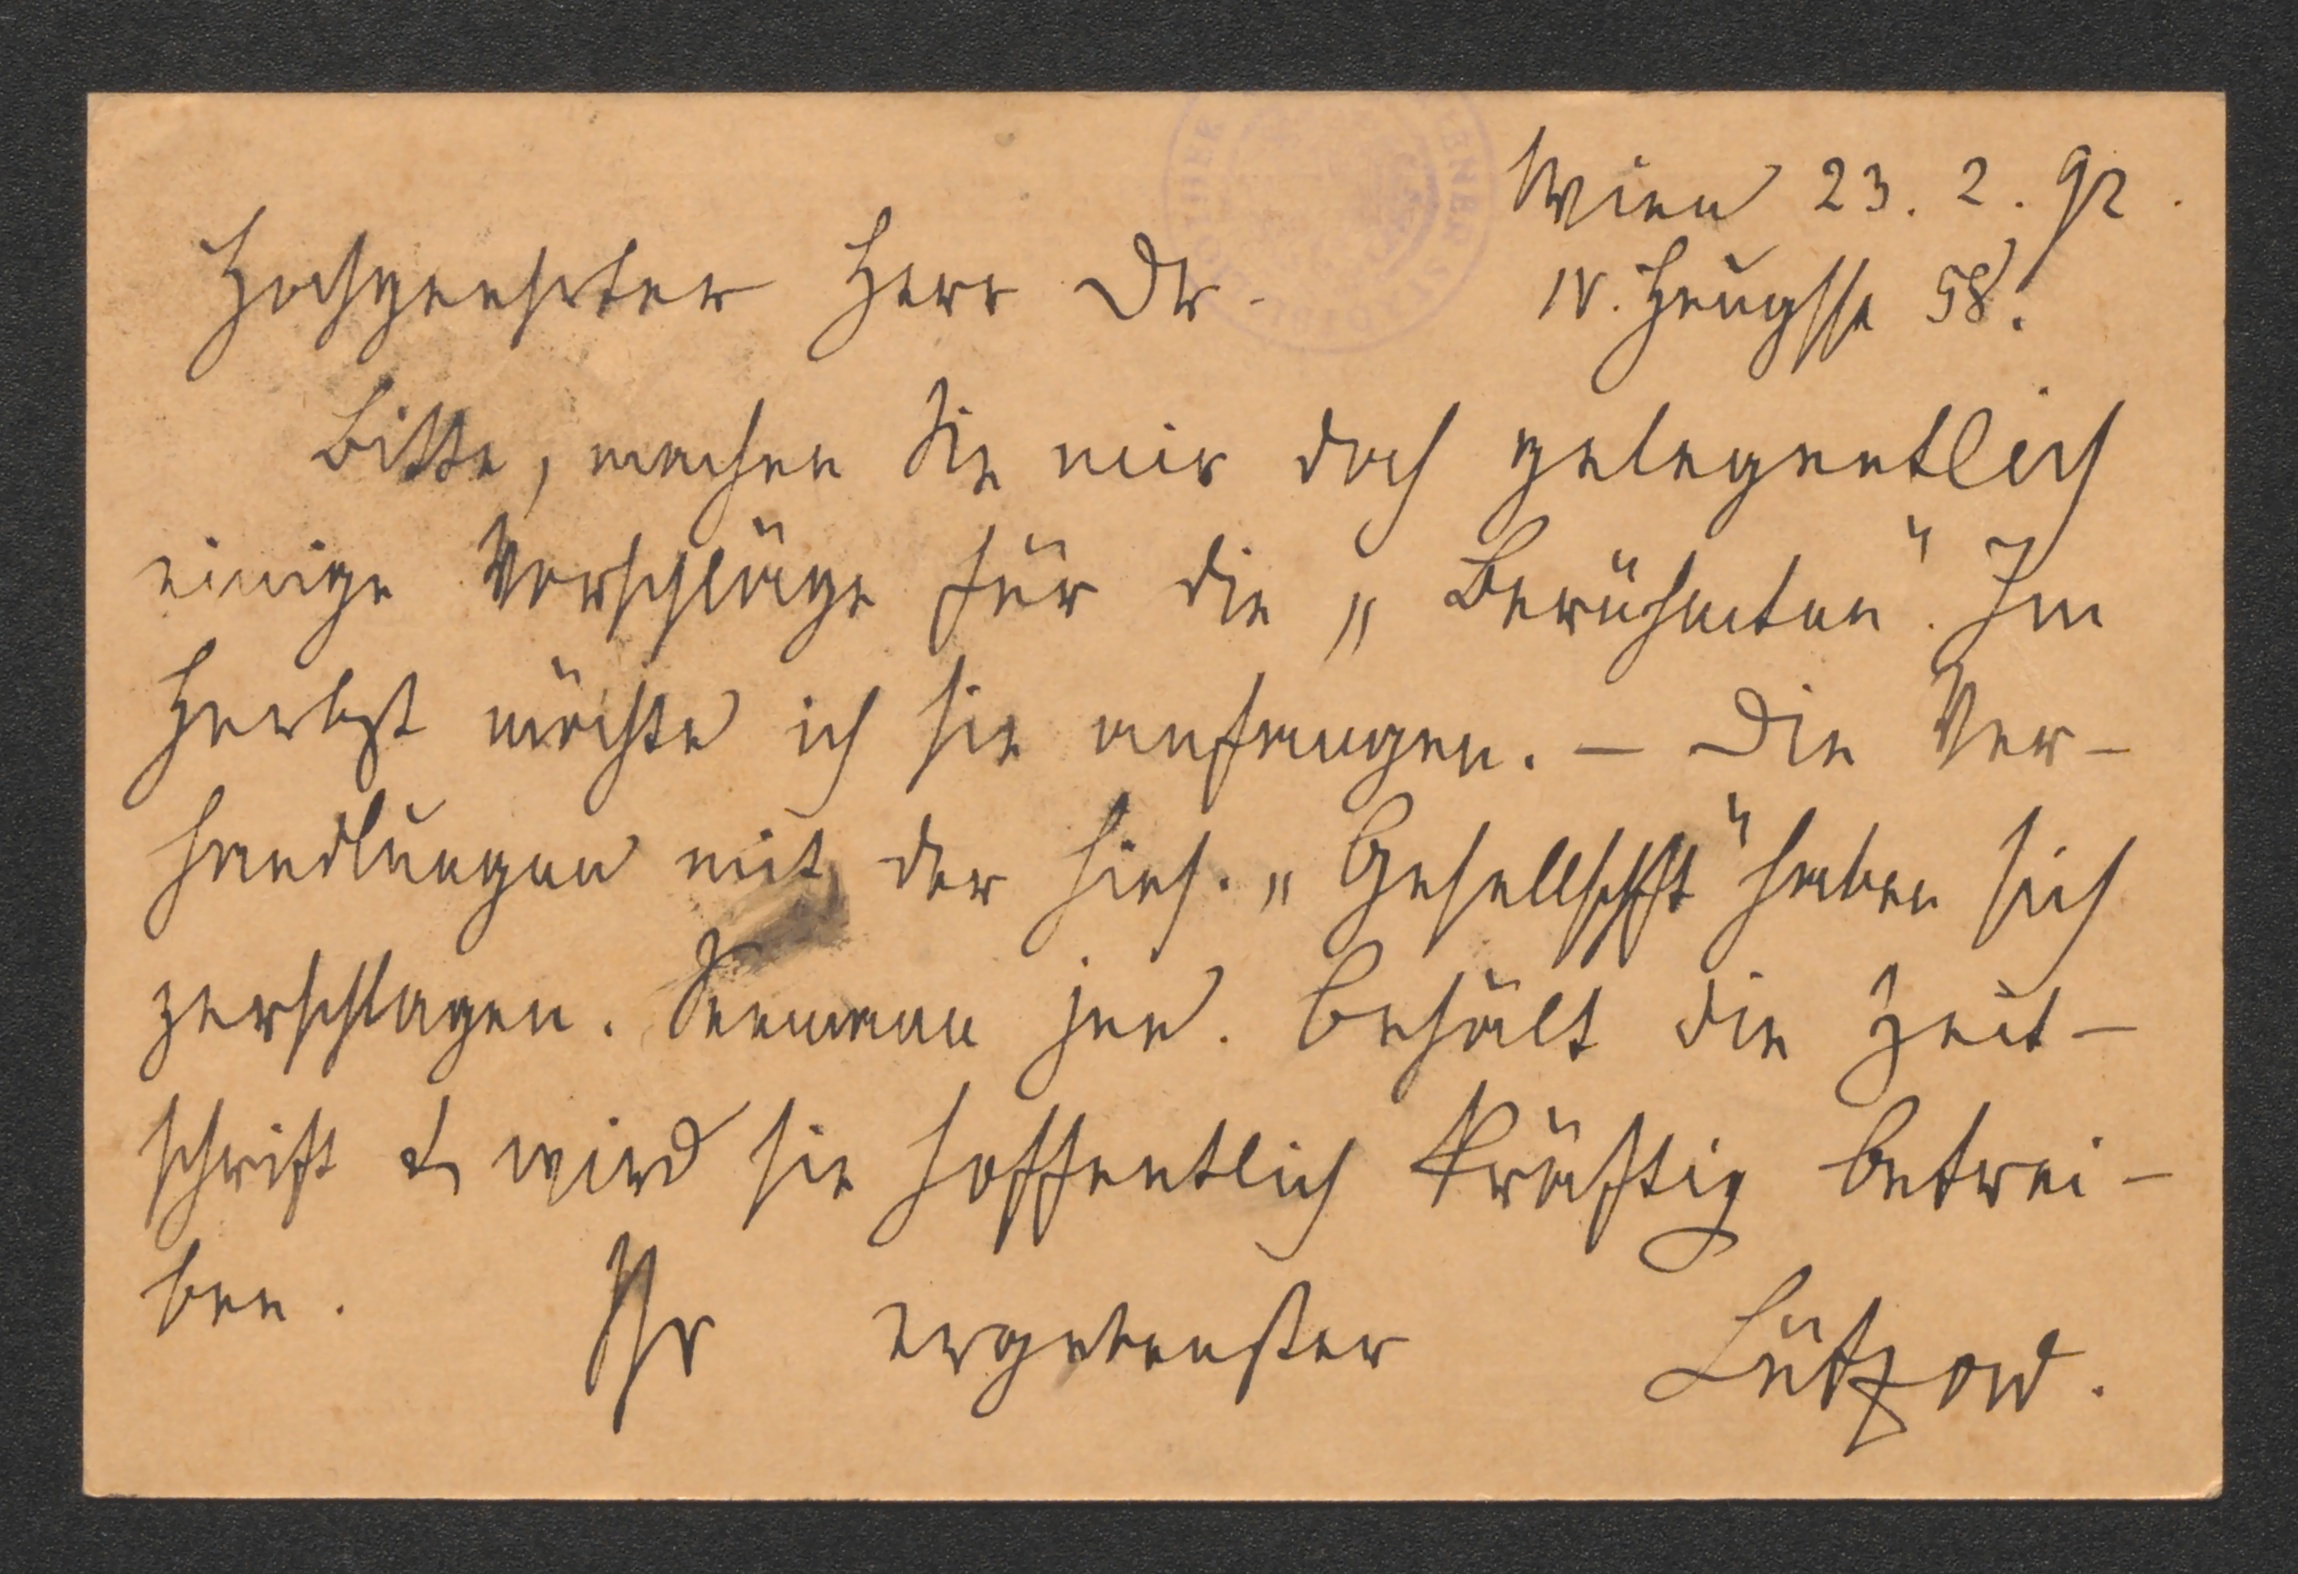 Wien 23. 2. 92.
Hochgeehrter Herr Dr.
IV. Heugsse 58.
Bitte, machen Sie mir doch gelegentlich
einige Vorschläge für die „Berühmten". Im
Herbst möchte ich sie anfangen. – Die Ver-
handlungen mit der hies. „Gesellschft" haben sich
zerschlagen. Seemann jun. behält die Zeit-
schrift & wird sie hoffentlich kräftig betrei-
ben.
Ihr ergebenster Lützow.